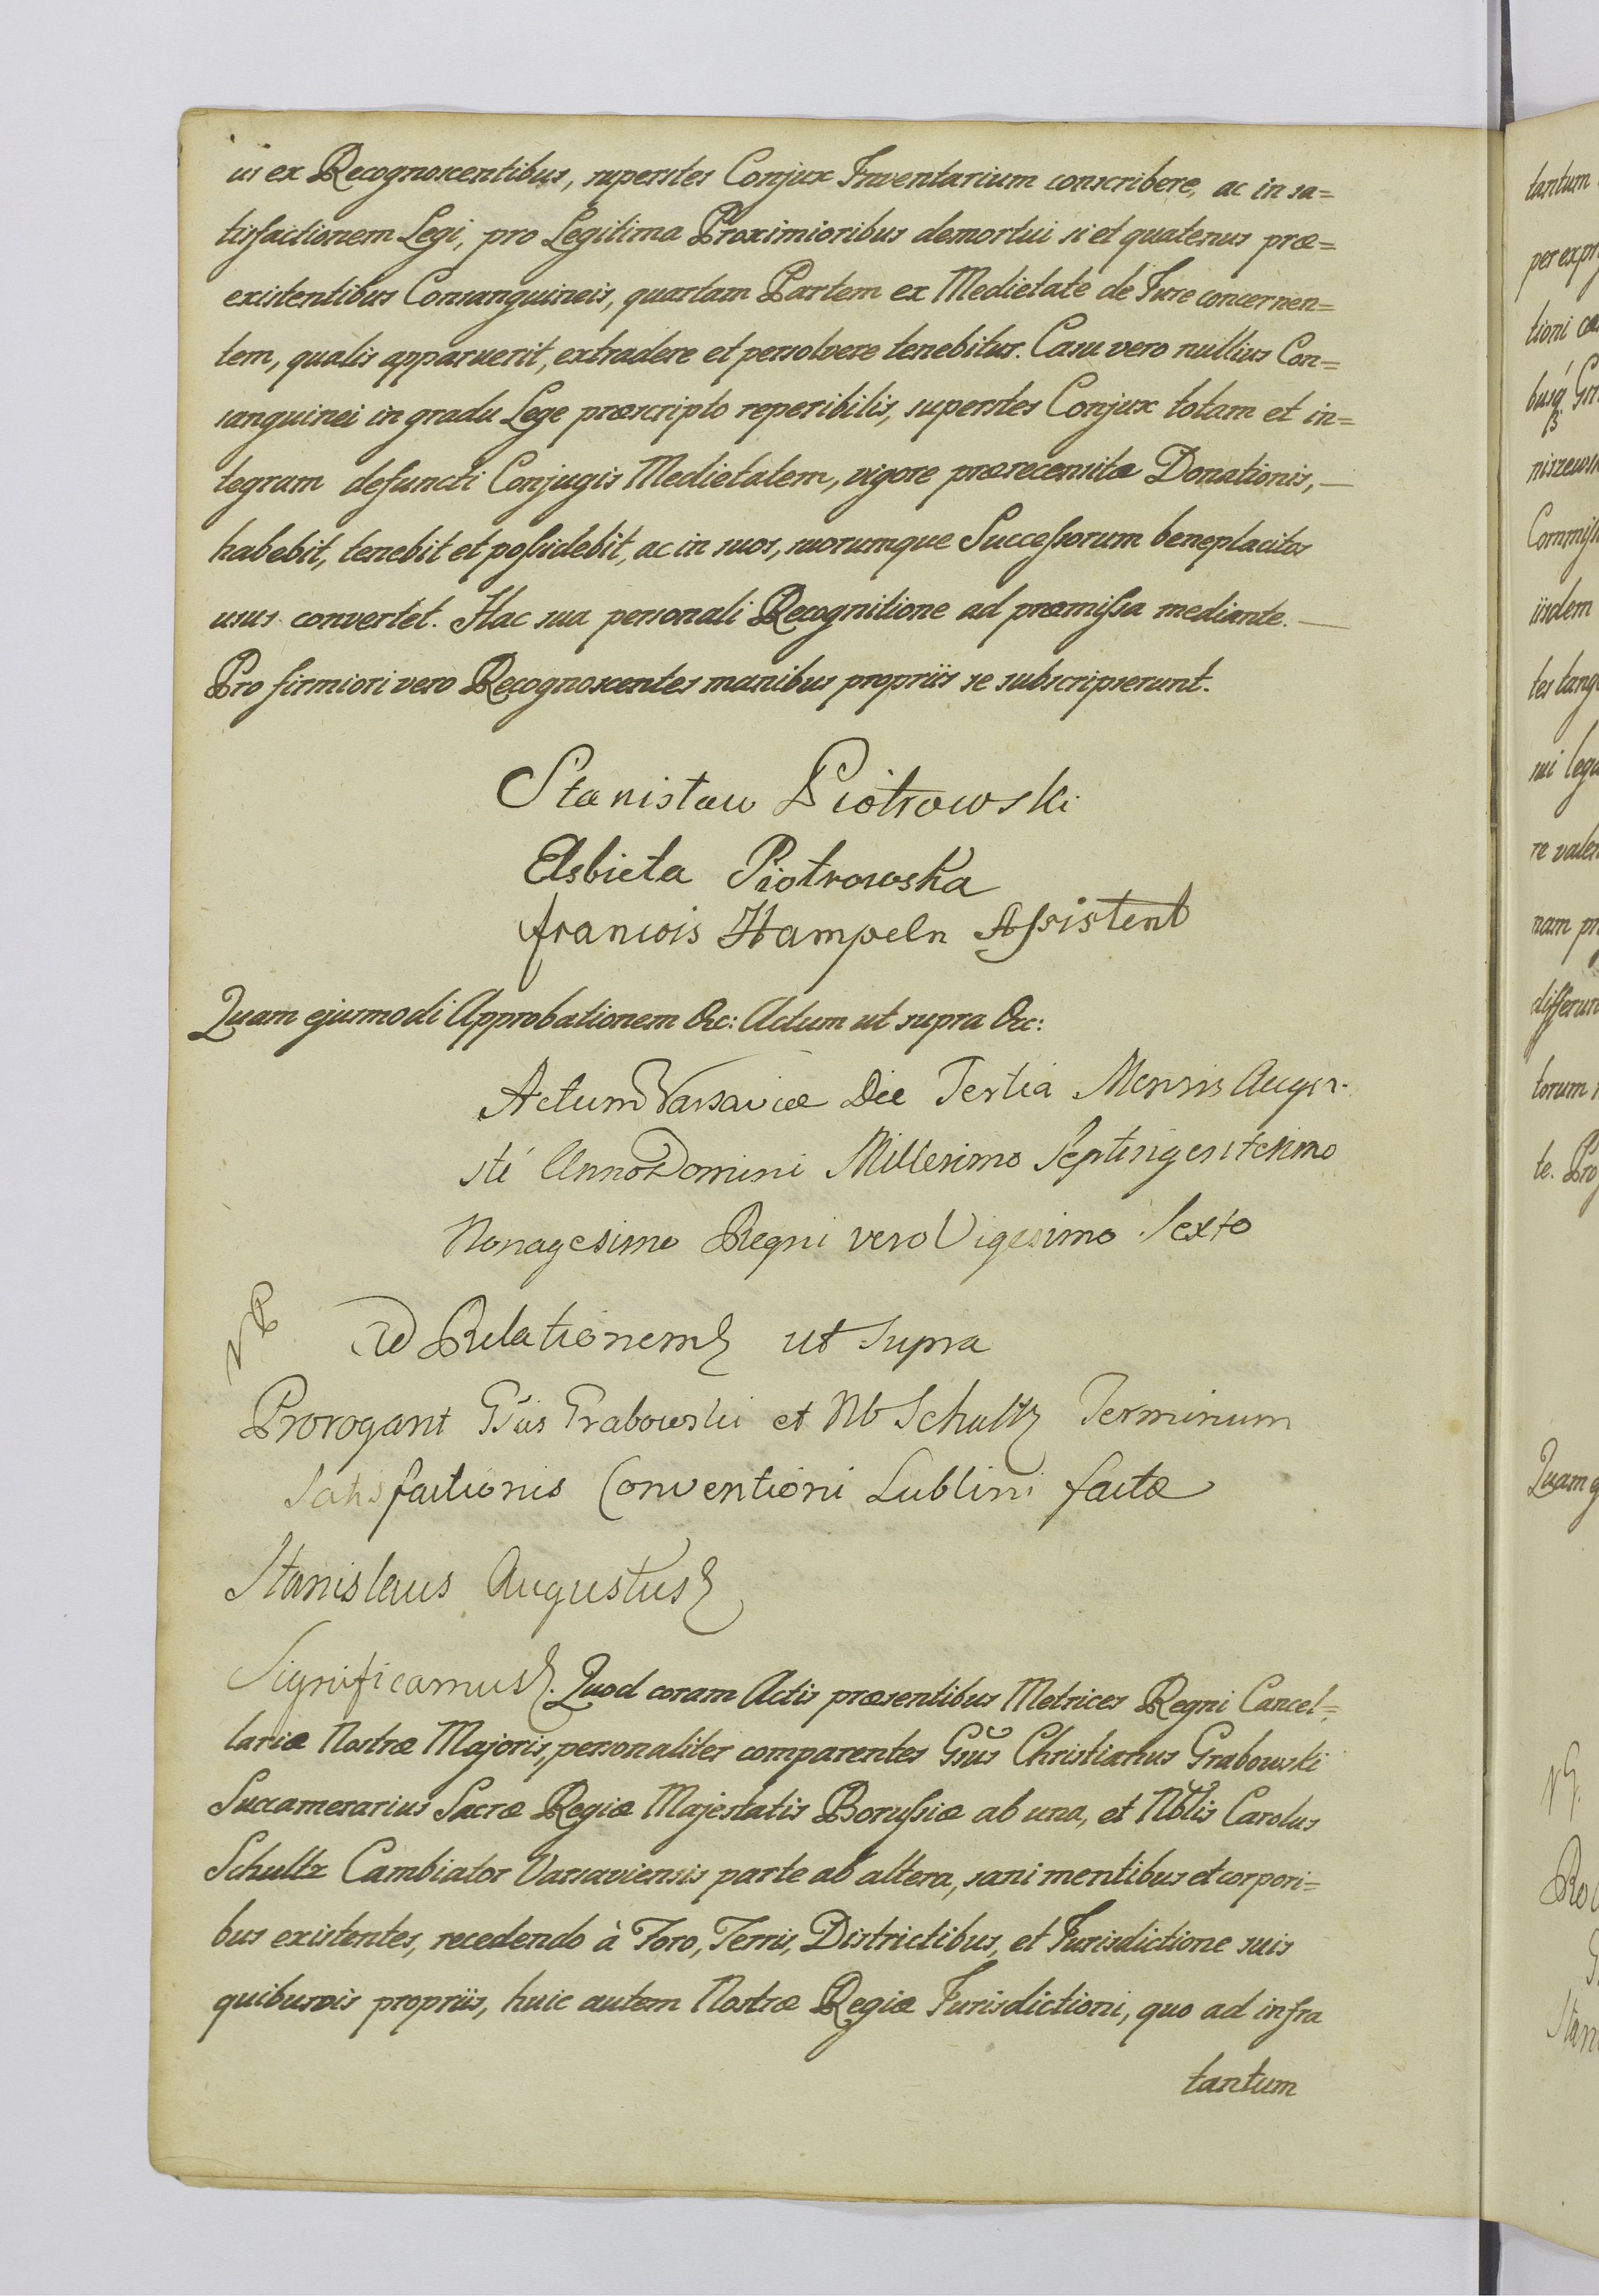 us ex Recognoscentibus, superstes Conjux Inventarium conscribere, ac in sa=
tisfactionem Legi, pro Legitima Proximioribus demortui si et quatenus præ=
existentibus Consanguineis, quartam Partem ex Medietate de Jure concernen=
tem, qualis apparuerit, extradere et persolvere tenebitur. Casu vero nullius Con=
sanguinei in gradu Lege præscripto reperibilis, superstes Conjux totam et in=
tegram defuncti Conjugis Medietatem, vigore prærecensitæ Donationis, —
habebit, tenebit et possidebit, ac in suos, suorumque Successorum beneplacitos
usus convertet. Hac sua personali Recognitione ad præmissa mediante. —
Pro firmiori vero Recognoscentes manibus propriis se subscripserunt.
Stanisław Piotrowski
Elsbieta Piotrowska
francois Hampeln Assistent
Quam ejusmodi Approbationem &c: Actum ut supra &c:
Actum Varsaviæ Die Tertia Mensis Augu-
sti Anno Domini Millesimo Septingentesimo
Nonagesimo Regni vero Vigesimo Sexto
Ad Relationem ut supra
Prorogant Gsus Grabowski et Nb Schultz Terminum
Satisfactionis Conventioni Lublini factæ
Stanislaus Augustus
Significamus. Quod coram Actis præsentibus Metrices Regni Cancel=
lariæ Nostræ Majoris, personaliter comparentes Gsus Christianus Grabowski
Succamerarius Sacræ Regiæ Majestatis Borussiæ ab una, et Nblis Carolus
Schultz Cambiator Varsaviensis parte ab altera, sani mentibus et corpori=
bus existentes, recedendo à Foro, Terris, Districtibus, et Jurisdictione suis
quibusvis propriis, huic autem Nostræ Regiæ Jurisdictioni, quo ad infra
tantum